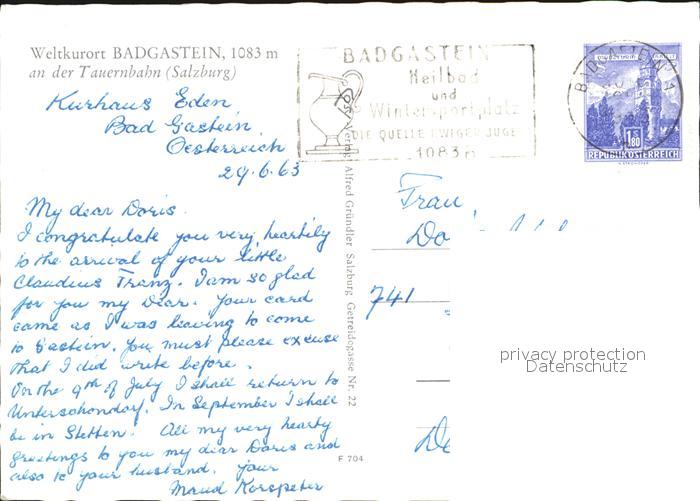 Weltkurort BADGASTEIN, 1083 m
an der Tauernbahn (Salzburg)
Kurhaus Eden
Bad Gastein
Oesterreich
29.6.63
My dear Doris.
I congratulate you very heartily
to the arrival of your little
Claudius Franz. I am so glad
for you my Dear. Your card
came as I was leaving to come
to Gastein. You must please excuse
that I did write before.
On the 9th of July I shall return to
Unterschondorf. In September I shall
be in Stetten. All my very hearty
greetings to you my dear Doris and
also to your husband. Your
Maud
F 704
Verlag Alfred Gründler Salzburg Getreidegasse Nr. 22
BADGASTEIN
Heilbad
und
Wintersportplatz
DIE QUELLE EWIGER JUGEND
1083 m
BADGASTEIN 1
1.80
REPUBLIK ÖSTERREICH
Frau
Do
741
De
privacy protection
Datenschutz